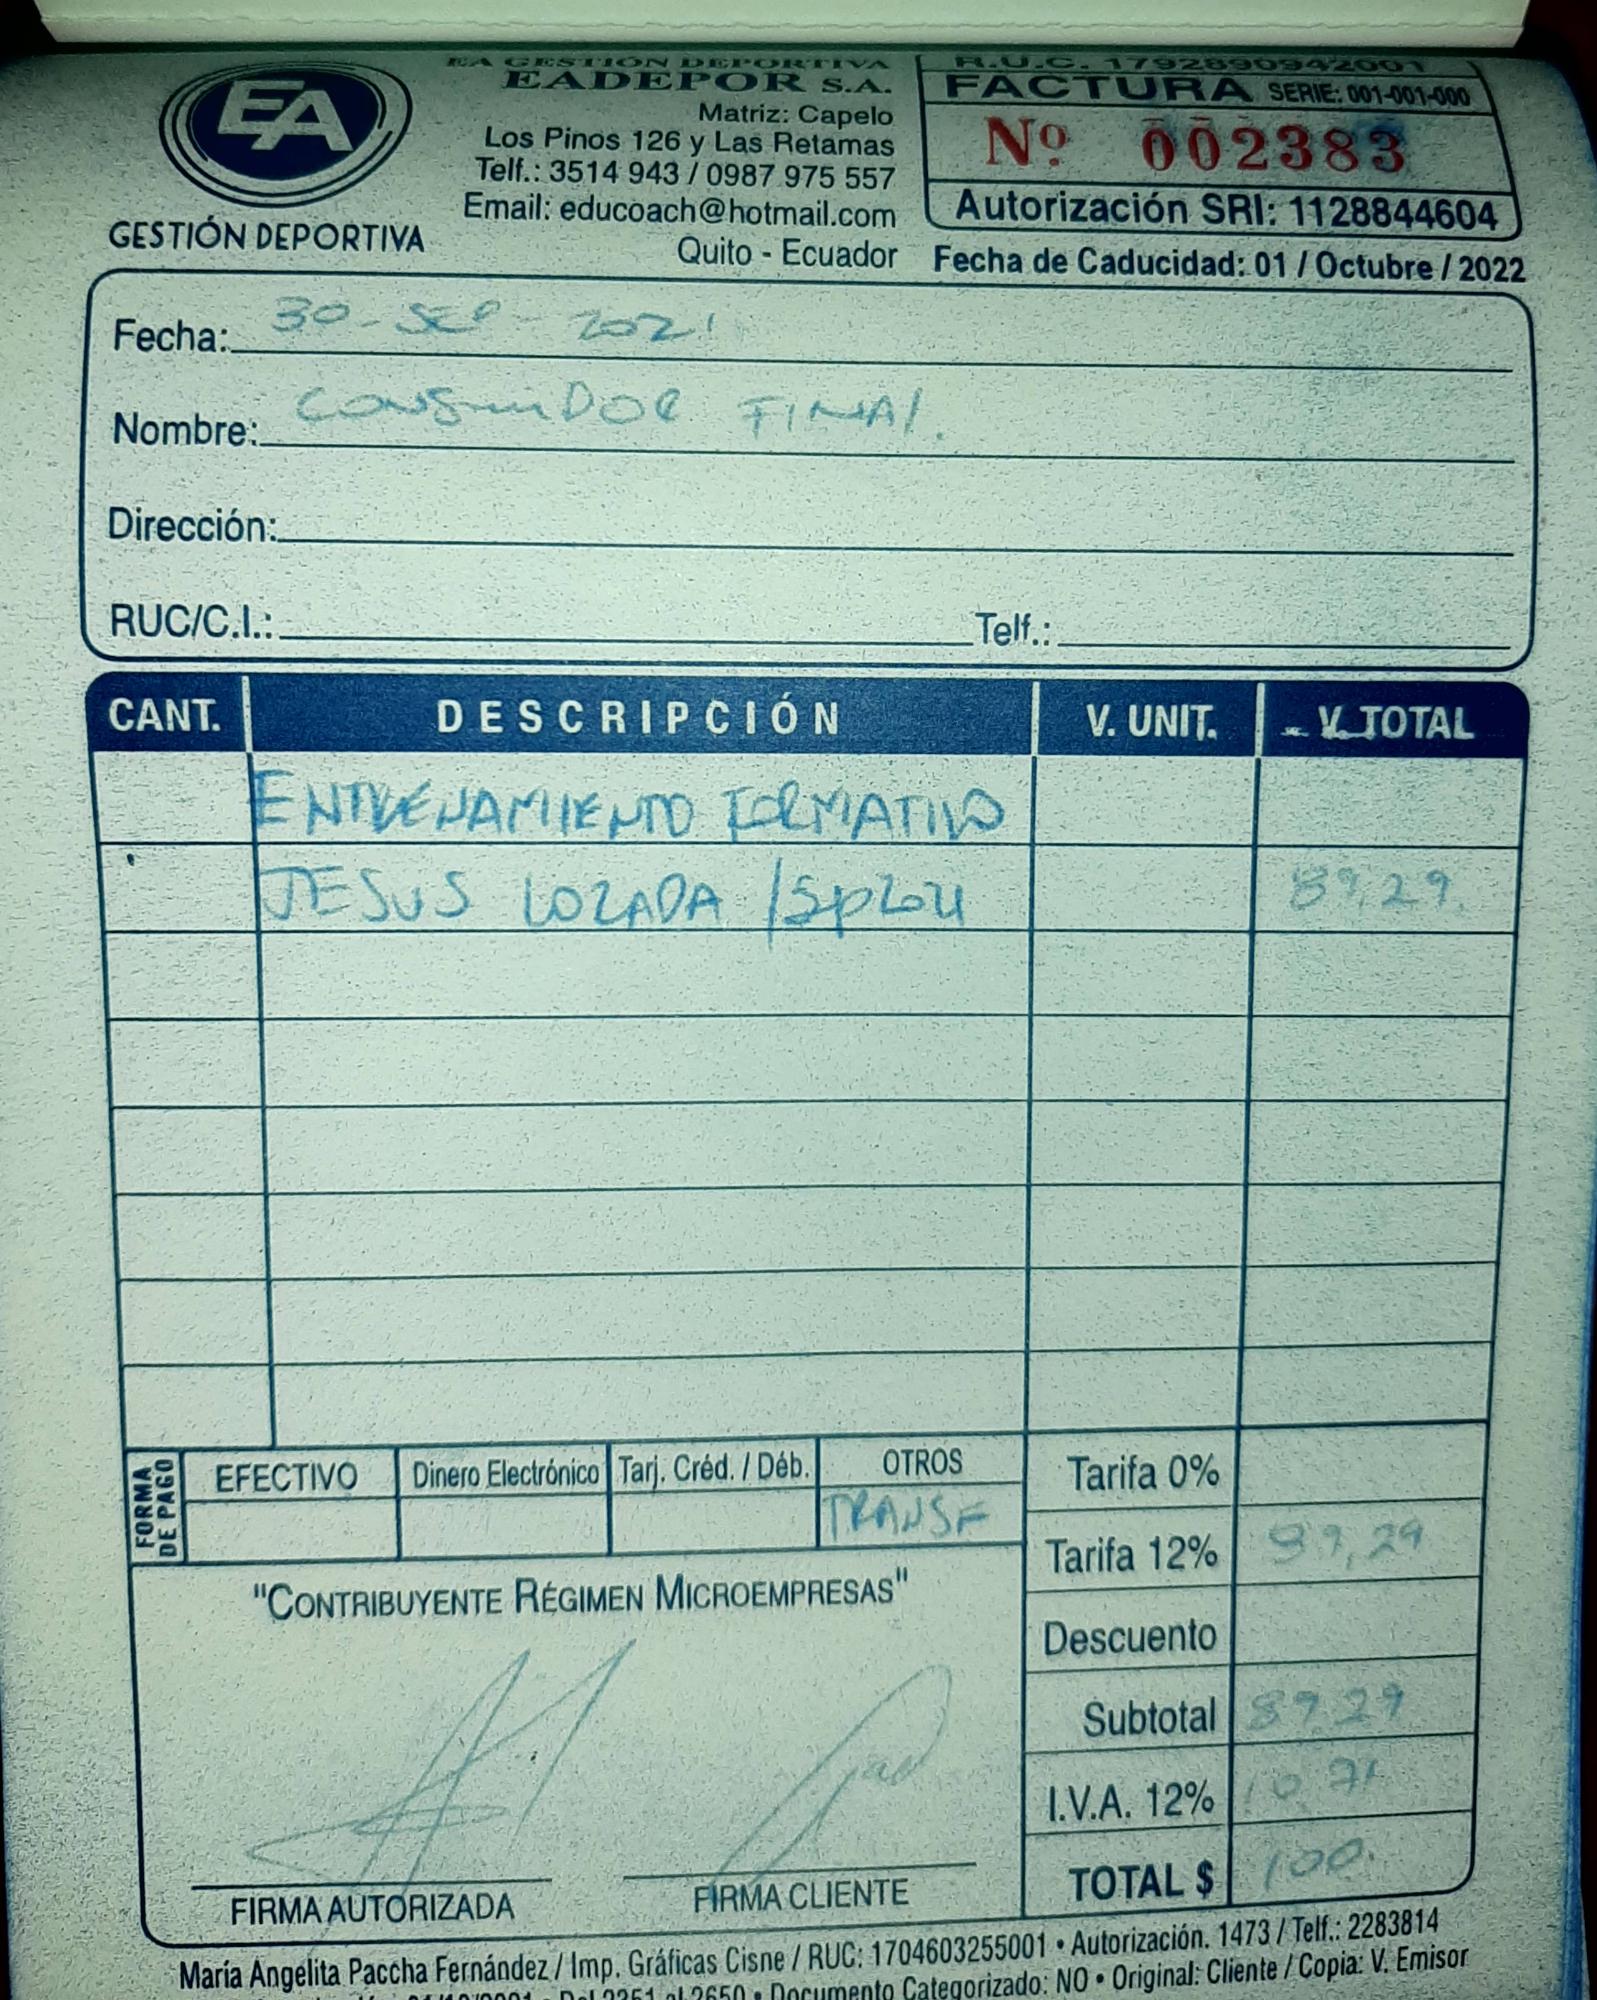 EA
GESTIÓN DEPORTIVA
EA GESTIÓN DEPORTIVA
EADEPOR S.A.
Matriz: Capelo
Los Pinos 126 y Las Retamas
Telf.: 3514 943 / 0987 975 557
Email: educoach@hotmail.com
Quito - Ecuador
R.U.C. 1792890942001
FACTURA SERIE: 001-001-000
Nº 002383
Autorización SRI: 1128844604
Fecha de Caducidad: 01 / Octubre / 2022
Fecha: 30-SEP-2021
Nombre: CONSUMIDOR FINAL.
Dirección:
RUC/C.I.: Telf.:
CANT. DESCRIPCIÓN V. UNIT. V. TOTAL
ENTRENAMIENTO FORMATIVO
JESUS LOZADA / 89.29
FORMA DE PAGO EFECTIVO Dinero Electrónico Tarj. Créd. / Déb. OTROS
TRANSF
Tarifa 0%
Tarifa 12% 89,29
Descuento
Subtotal 89.29
I.V.A. 12% 10.71
TOTAL $ 100.
"CONTRIBUYENTE RÉGIMEN MICROEMPRESAS"
FIRMA AUTORIZADA FIRMA CLIENTE
María Angelita Paccha Fernández / Imp. Gráficas Cisne / RUC: 1704603255001 • Autorización. 1473 / Telf.: 2283814
Del 2351 al 2650 • Documento Categorizado: NO • Original: Cliente / Copia: V. Emisor